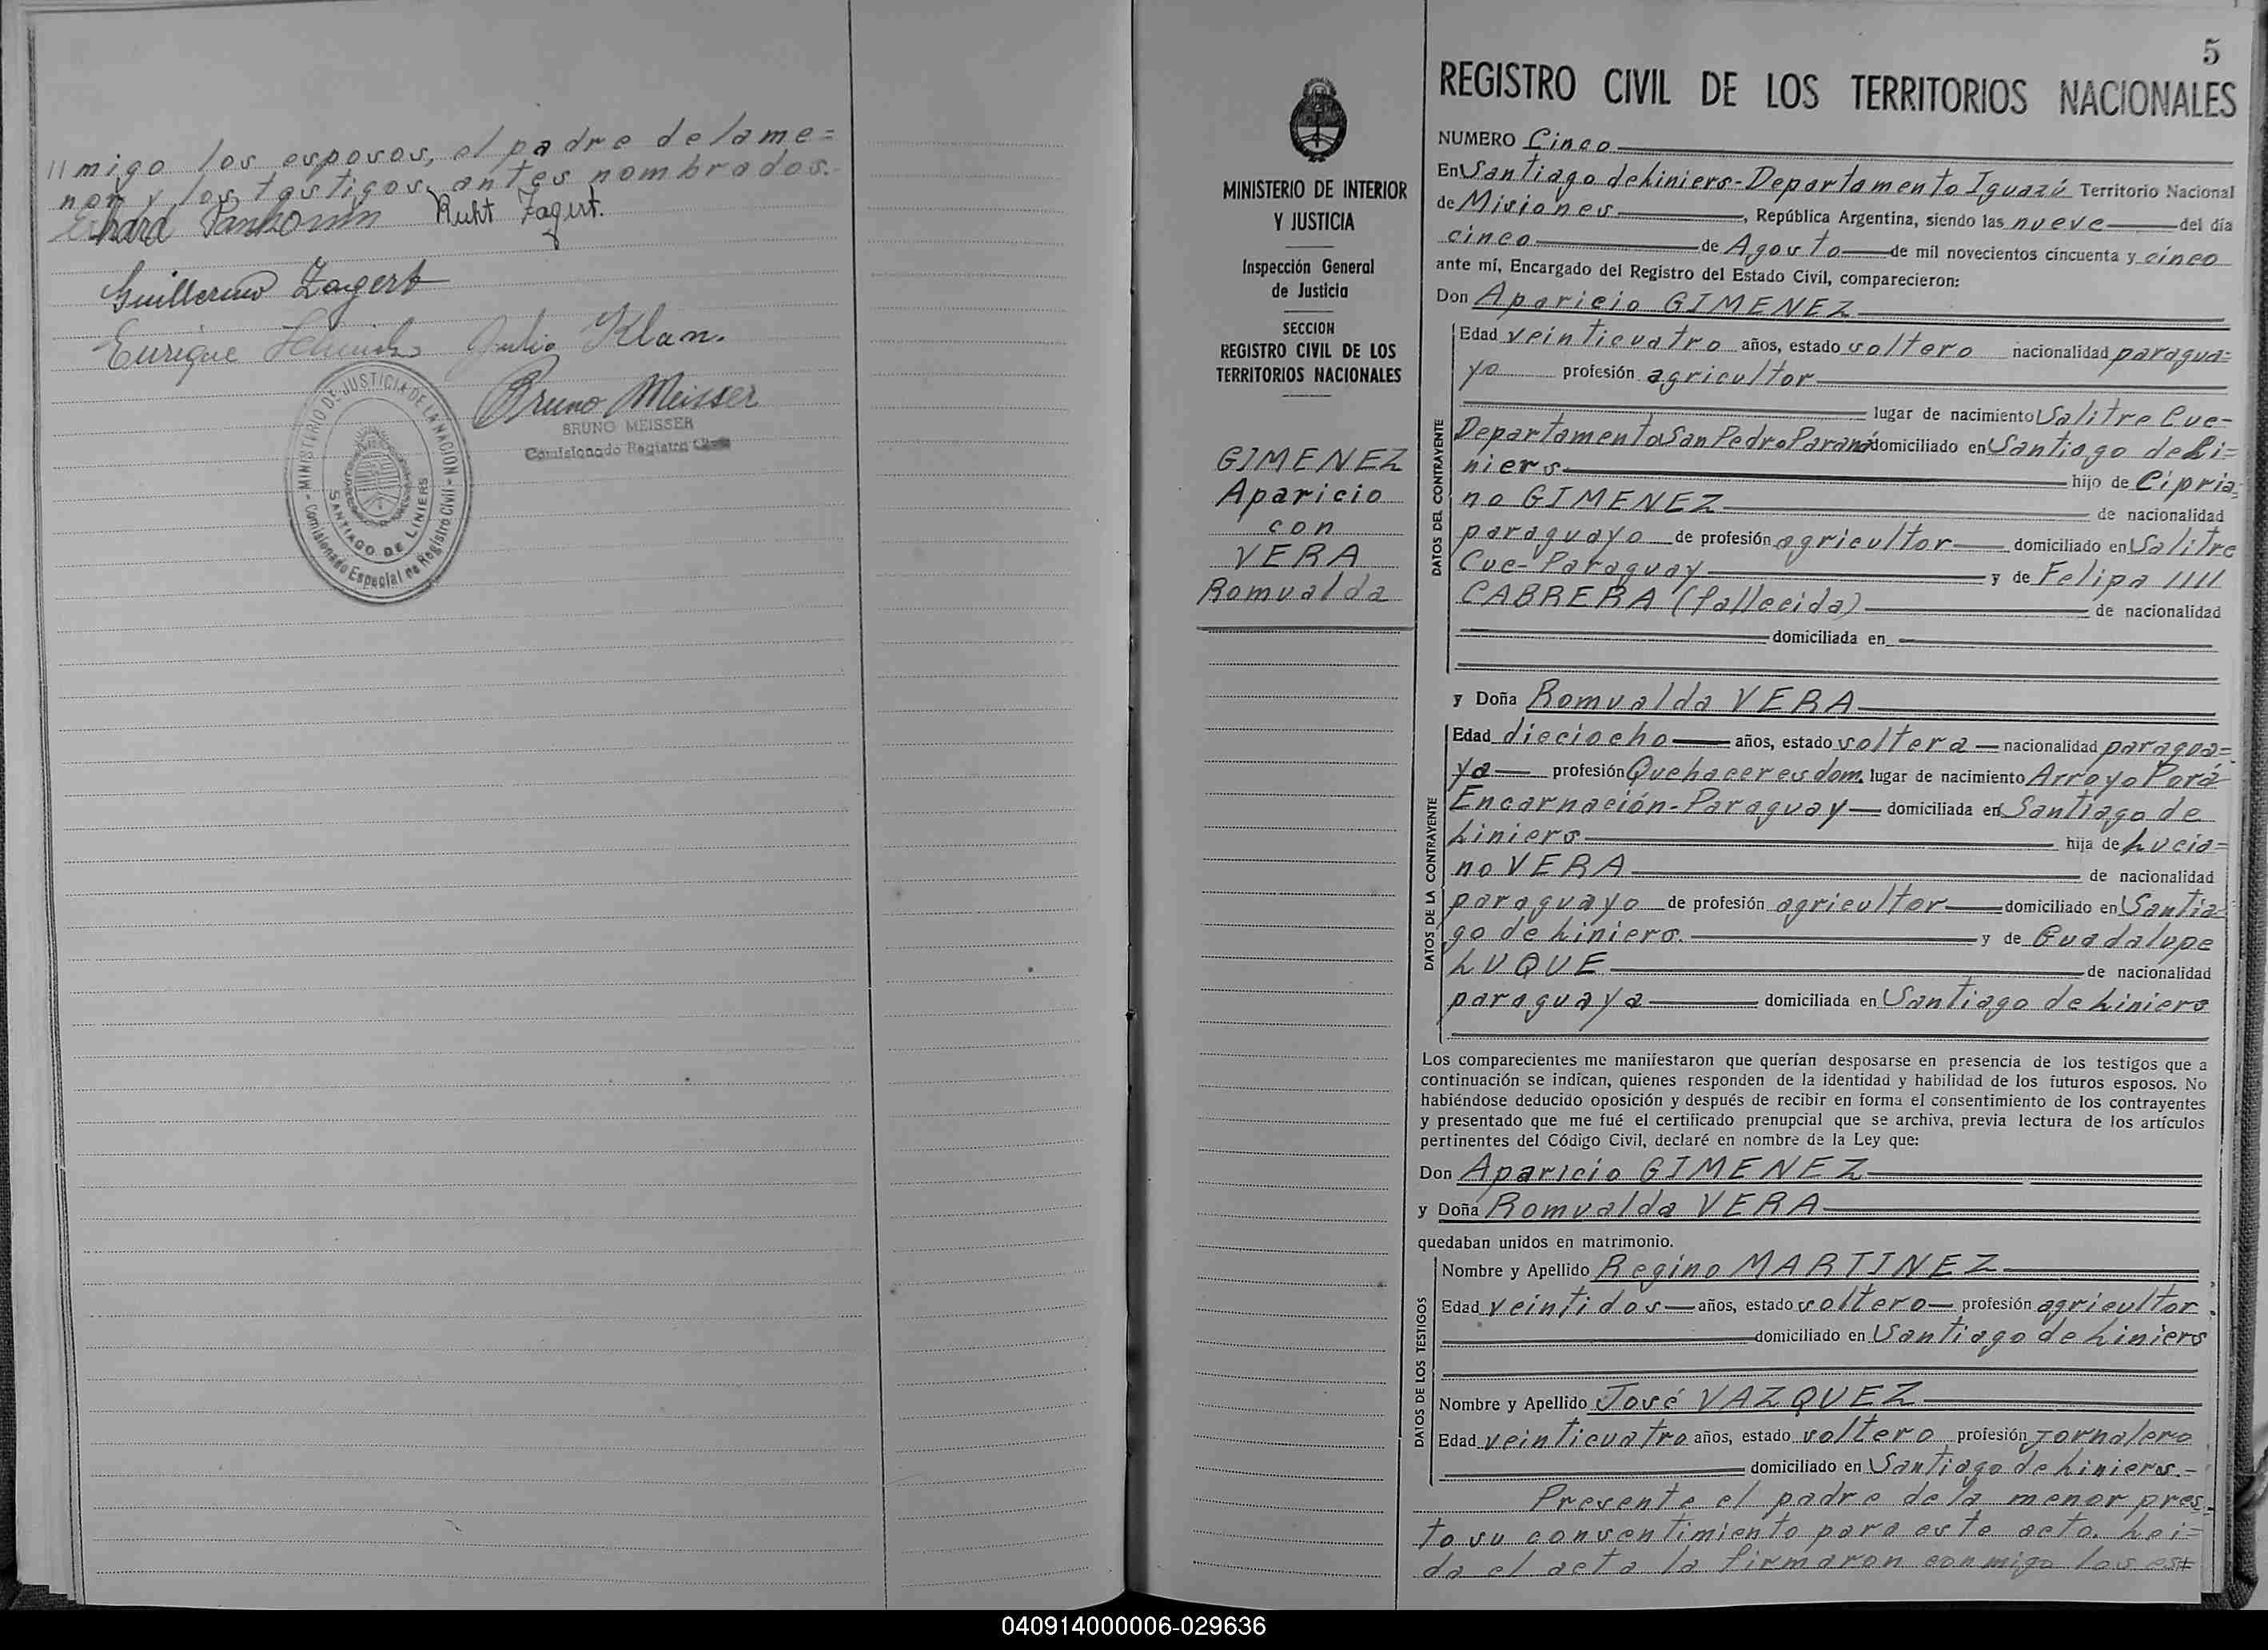 //migo los esposos, el padre de la me=
nor y los testigos, antes nombrados.
Ruht Zagert.
Guillermo Zagert
Enrique Julio Klan.
Bruno Meisser
BRUNO MEISSER
Comisionado Registro Civil
MINISTERIO DE JUSTICIA DE LA NACION - Comisionado Especial de Registro Civil -
SANTIAGO DE LINIERS
5
REGISTRO CIVIL DE LOS TERRITORIOS NACIONALES
MINISTERIO DE INTERIOR
Y JUSTICIA
Inspección General
de Justicia
SECCION
REGISTRO CIVIL DE LOS
TERRITORIOS NACIONALES
GIMENEZ
Aparicio
con
VERA
Romualda
NUMERO Cinco
En Santiago de Liniers - Departamento Iguazú Territorio Nacional
de Misiones, República Argentina, siendo las nueve del día
cinco de Agosto de mil novecientos cincuenta y cinco
ante mí, Encargado del Registro del Estado Civil, comparecieron:
Don Aparicio GIMENEZ
DATOS DEL CONTRAYENTE
Edad veinticuatro años, estado soltero nacionalidad paragua=
yo profesión agricultor
lugar de nacimiento Salitre Cue-
Departamento San Pedro Paraná domiciliado en Santiago de Li=
niers hijo de Cipria=
no GIMENEZ de nacionalidad
paraguayo de profesión agricultor domiciliado en Salitre
Cue-Paraguay y de Felipa ////
CABRERA (fallecida) de nacionalidad
domiciliada en
y Doña Romualda VERA
DATOS DE LA CONTRAYENTE
Edad dieciocho años, estado soltera nacionalidad paragua=
ya profesión Quehaceres dom. lugar de nacimiento Arroyo Porá
Encarnación-Paraguay domiciliada en Santiago de
Liniers hija de Lucia=
no VERA de nacionalidad
paraguayo de profesión agricultor domiciliado en Santia=
go de Liniers. y de Guadalupe
LUQUE de nacionalidad
paraguaya domiciliada en Santiago de Liniers
Los comparecientes me manifestaron que querían desposarse en presencia de los testigos que a
continuación se indican, quienes responden de la identidad y habilidad de los futuros esposos. No
habiéndose deducido oposición y después de recibir en forma el consentimiento de los contrayentes
y presentado que me fué el certificado prenupcial que se archiva, previa lectura de los artículos
pertinentes del Código Civil, declaré en nombre de la Ley que:
Don Aparicio GIMENEZ
y Doña Romualda VERA
quedaban unidos en matrimonio.
DATOS DE LOS TESTIGOS
Nombre y Apellido Regino MARTINEZ
Edad veintidos años, estado soltero profesión agricultor.
domiciliado en Santiago de Liniers
Nombre y Apellido José VAZQUEZ
Edad veinticuatro años, estado soltero profesión jornalero
domiciliado en Santiago de Liniers.-
Presente el padre de la menor pres=
to su consentimiento para este acto. Lei=
da el acta la firmaron conmigo los es=
040914000006-029636